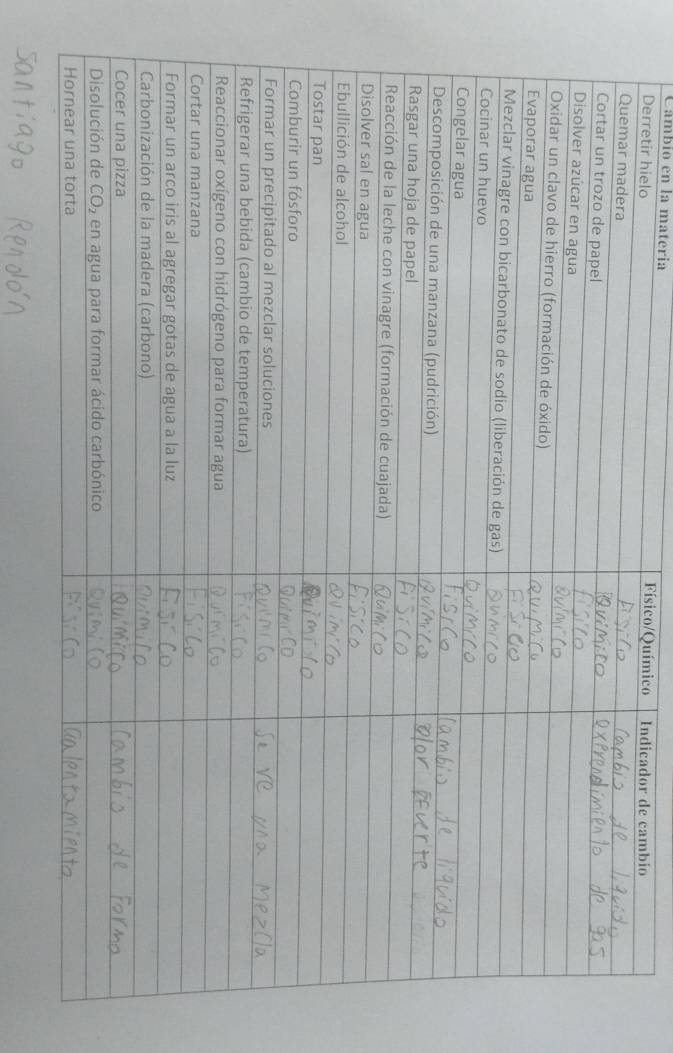 Cambio en la materia Físico/Químico Indicador de cambio
Derretir hielo Fisico Cambio de liquido
Quemar madera Quimico exprendimiento de gas
Cortar un trozo de papel fisico
Disolver azúcar en agua Quimico
Oxidar un clavo de hierro (formación de óxido) Quimico
Evaporar agua Fisico
Mezclar vinagre con bicarbonato de sodio (liberación de gas) Quimico
Cocinar un huevo Quimico
Congelar agua Fisico Cambio de liquido
Descomposición de una manzana (pudrición) Quimico olor Fuerte
Rasgar una hoja de papel Fisico
Reacción de la leche con vinagre (formación de cuajada) Quimico
Disolver sal en agua Fisico
Ebullición de alcohol Quimico
Tostar pan Quimico
Comburir un fósforo Quimico
Formar un precipitado al mezclar soluciones Quimico Se ve una mezcla
Refrigerar una bebida (cambio de temperatura) Fisico
Reaccionar oxígeno con hidrógeno para formar agua Quimico
Cortar una manzana Fisico
Formar un arco iris al agregar gotas de agua a la luz Fisico
Carbonización de la madera (carbono) Quimico
Cocer una pizza Quimico Cambio de Forma
Disolución de CO₂ en agua para formar ácido carbónico Quimico
Hornear una torta Fisico Calentamiento
Santiago Rendón